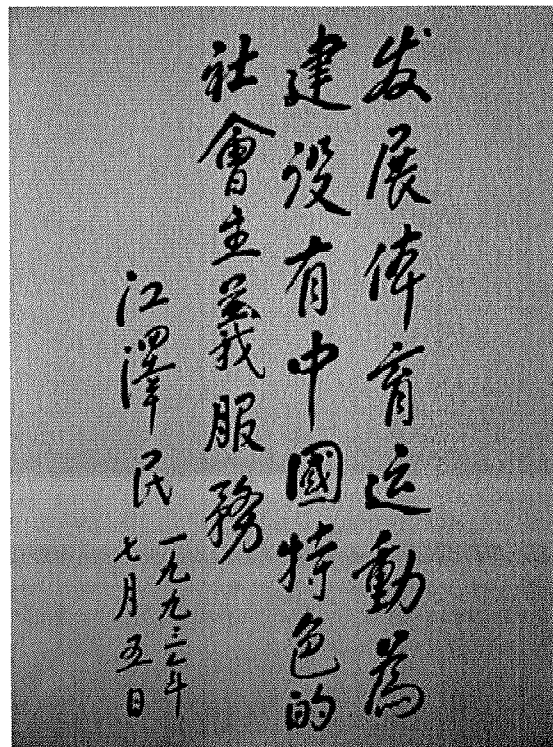 发展体育运動為
建设有中國特色的
社會主義服務
江澤民
一九九三年
七月五日